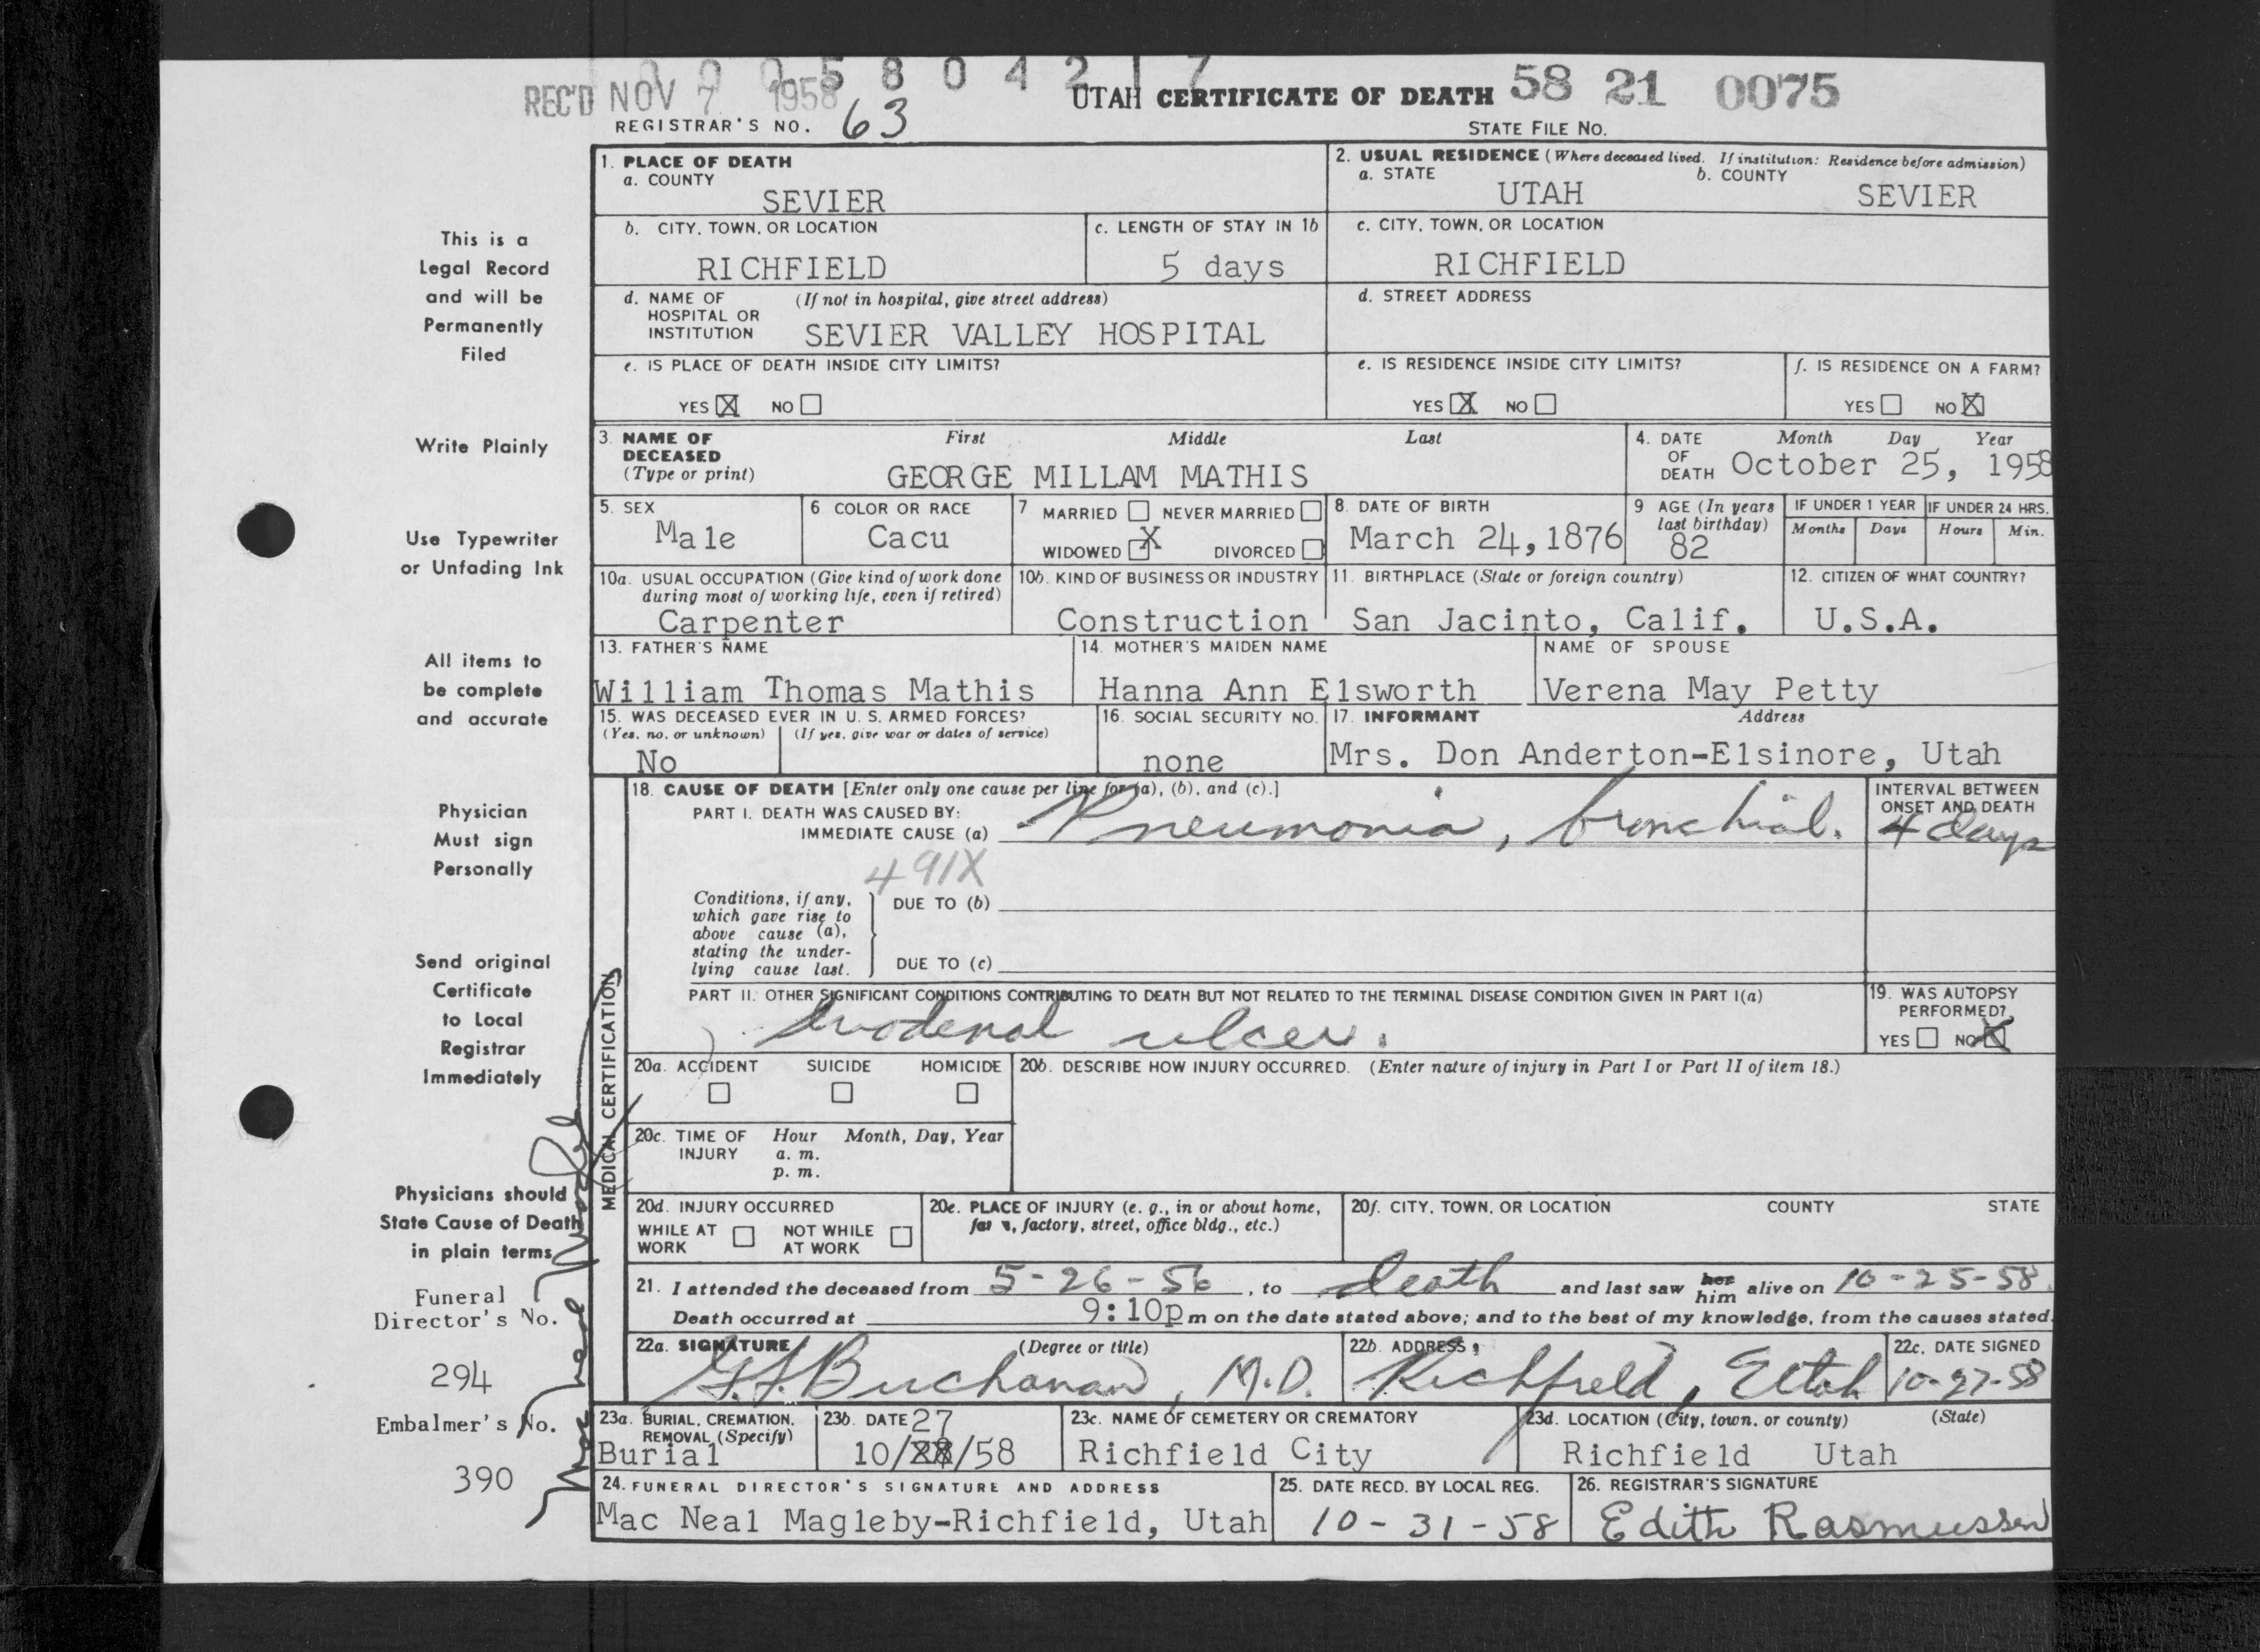 0 0 0 5 8 0 4 2 1 7
REC'D NOV 7 1958
UTAH CERTIFICATE OF DEATH 58 21 0075
REGISTRAR'S NO. 63
STATE FILE No.
This is a
Legal Record
and will be
Permanently
Filed
Write Plainly
Use Typewriter
or Unfading Ink
All items to
be complete
and accurate
Physician
Must sign
Personally
Send original
Certificate
to Local
Registrar
Immediately
Physicians should
State Cause of Death
in plain terms
Funeral
Director's No.
294
Embalmer's No.
390
1. PLACE OF DEATH
a. COUNTY
SEVIER
2. USUAL RESIDENCE (Where deceased lived. If institution: Residence before admission)
a. STATE b. COUNTY
UTAH SEVIER
b. CITY, TOWN, OR LOCATION
RICHFIELD
c. LENGTH OF STAY IN 1b
5 days
c. CITY, TOWN, OR LOCATION
RICHFIELD
d. NAME OF (If not in hospital, give street address)
HOSPITAL OR
INSTITUTION SEVIER VALLEY HOSPITAL
d. STREET ADDRESS
e. IS PLACE OF DEATH INSIDE CITY LIMITS?
YES X NO
e. IS RESIDENCE INSIDE CITY LIMITS?
YES X NO
f. IS RESIDENCE ON A FARM?
YES NO X
3. NAME OF First Middle Last
DECEASED
(Type or print) GEORGE MILLAM MATHIS
4. DATE Month Day Year
OF
DEATH October 25, 1958
5. SEX
Male
6 COLOR OR RACE
Cacu
7 MARRIED NEVER MARRIED
WIDOWED X DIVORCED
8. DATE OF BIRTH
March 24, 1876
9 AGE (In years
last birthday)
82
IF UNDER 1 YEAR
Months Days
IF UNDER 24 HRS.
Hours Min.
10a. USUAL OCCUPATION (Give kind of work done
during most of working life, even if retired)
Carpenter
10b. KIND OF BUSINESS OR INDUSTRY
Construction
11. BIRTHPLACE (State or foreign country)
San Jacinto, Calif.
12. CITIZEN OF WHAT COUNTRY?
U.S.A.
13. FATHER'S NAME
William Thomas Mathis
14. MOTHER'S MAIDEN NAME
Hanna Ann Elsworth
NAME OF SPOUSE
Verena May Petty
15. WAS DECEASED EVER IN U. S. ARMED FORCES?
(Yes, no, or unknown) (If yes, give war or dates of service)
No
16. SOCIAL SECURITY NO.
none
17. INFORMANT Address
Mrs. Don Anderton-Elsinore, Utah
MEDICAL CERTIFICATION
18. CAUSE OF DEATH [Enter only one cause per line for (a), (b), and (c).]
PART I. DEATH WAS CAUSED BY:
IMMEDIATE CAUSE (a) Pneumonia, bronchial.
INTERVAL BETWEEN
ONSET AND DEATH
4 days
491X
Conditions, if any,
which gave rise to
above cause (a),
stating the under-
lying cause last.
DUE TO (b)
DUE TO (c)
PART II. OTHER SIGNIFICANT CONDITIONS CONTRIBUTING TO DEATH BUT NOT RELATED TO THE TERMINAL DISEASE CONDITION GIVEN IN PART I(a)
duodenal ulcer.
19. WAS AUTOPSY
PERFORMED?
YES NO X
20a. ACCIDENT SUICIDE HOMICIDE
20b. DESCRIBE HOW INJURY OCCURRED. (Enter nature of injury in Part I or Part II of item 18.)
20c. TIME OF Hour Month, Day, Year
INJURY a. m.
p. m.
20d. INJURY OCCURRED
WHILE AT NOT WHILE
WORK AT WORK
20e. PLACE OF INJURY (e. g., in or about home,
farm, factory, street, office bldg., etc.)
20f. CITY, TOWN, OR LOCATION COUNTY STATE
21. I attended the deceased from 5-26-56, to death and last saw her him alive on 10-25-58.
Death occurred at 9:10p m on the date stated above; and to the best of my knowledge, from the causes stated.
22a. SIGNATURE (Degree or title)
Buchanan, M.D.
22b. ADDRESS
Richfield, Utah
22c. DATE SIGNED
10-27-58
23a. BURIAL, CREMATION,
REMOVAL (Specify)
Burial
23b. DATE 27
10/28/58
23c. NAME OF CEMETERY OR CREMATORY
Richfield City
23d. LOCATION (City, town, or county) (State)
Richfield Utah
24. FUNERAL DIRECTOR'S SIGNATURE AND ADDRESS
Mac Neal Magleby-Richfield, Utah
25. DATE RECD. BY LOCAL REG.
10-31-58
26. REGISTRAR'S SIGNATURE
Edith Rasmussen